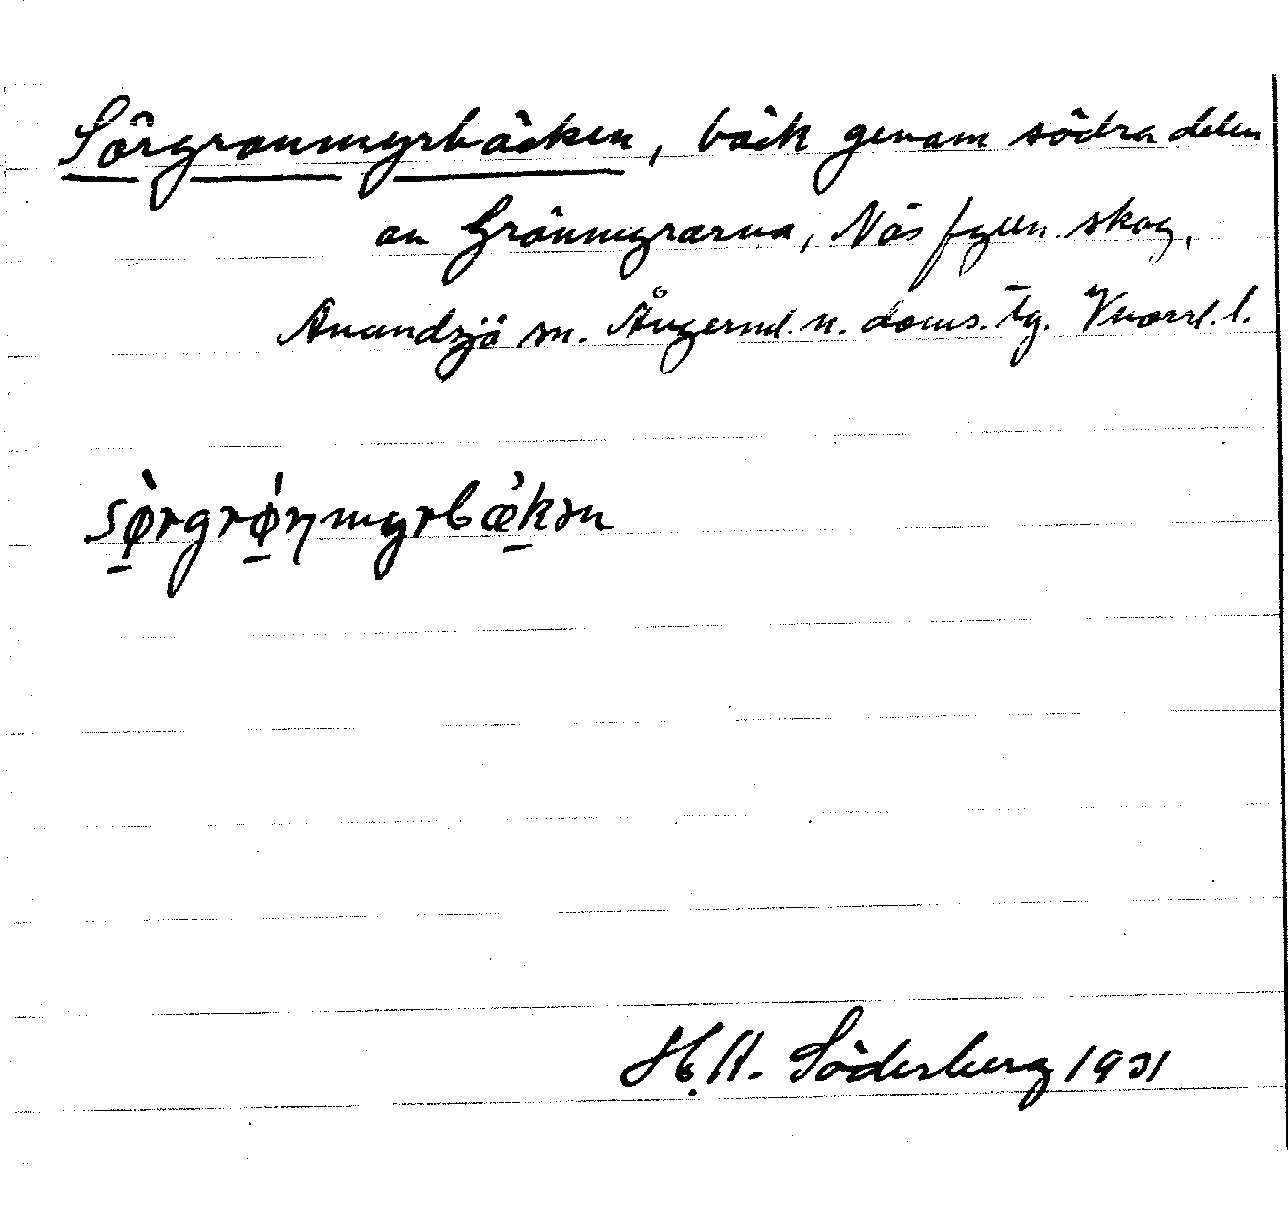 Sörgrönmyrbäcken, bäck genom södra delen
av Grönmyrarna, Näs fgsn. skog,
Anundsjö sn. Ångerml. n. doms. tg. Vnorrl. l.
sø̀rgrǿnmyrbæ̀kən
H. A. Söderberg 1931